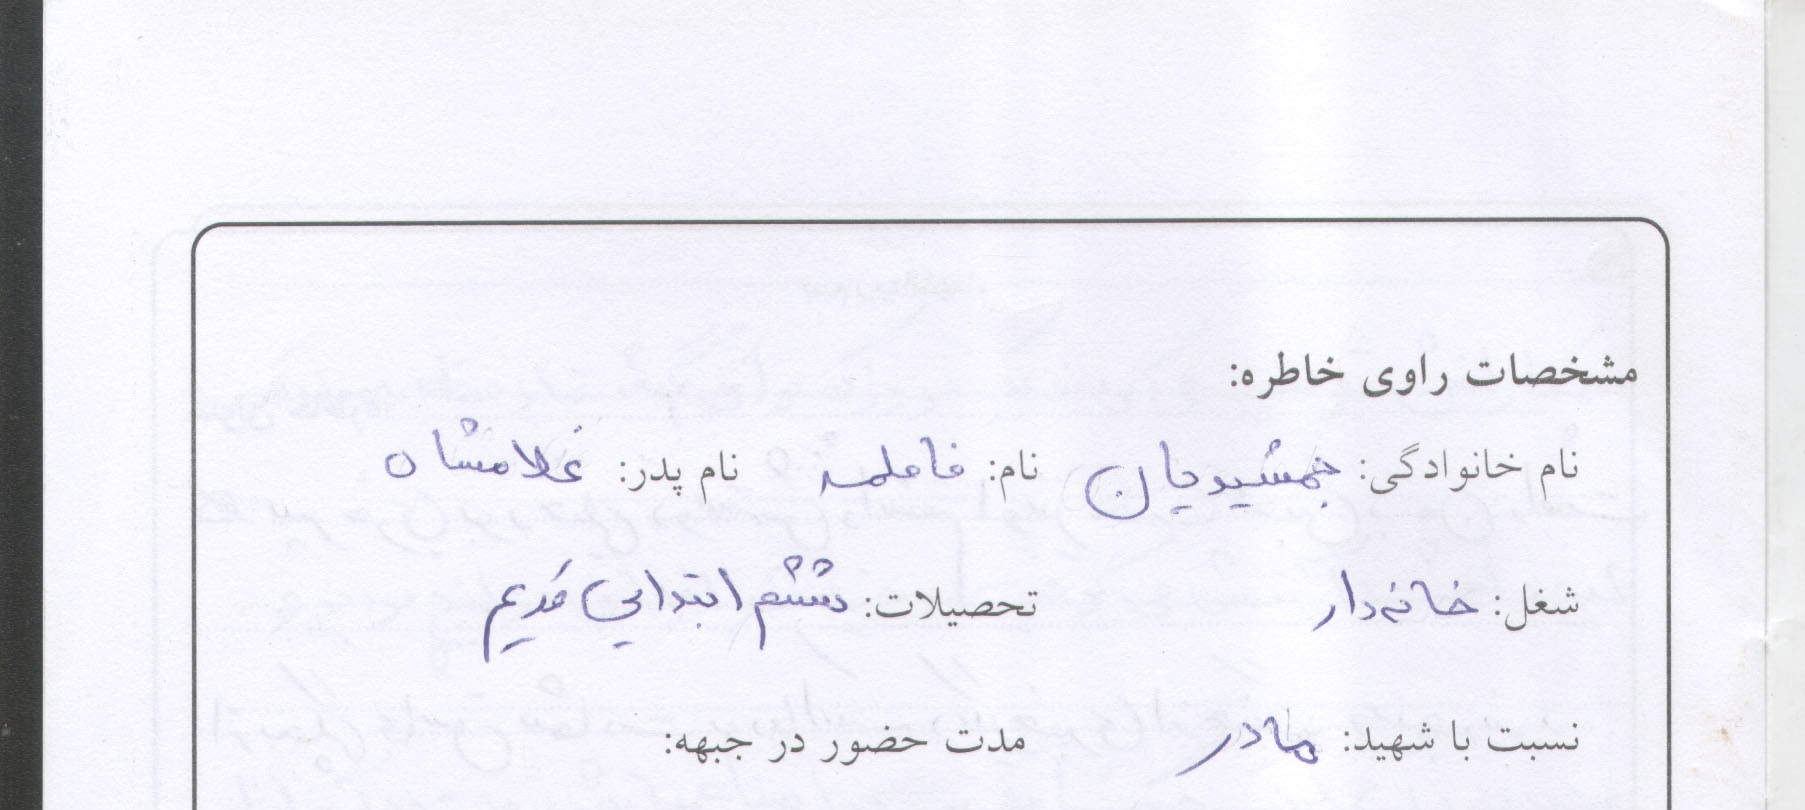 مشخصات راوی خاطره:
نام خانوادگی: جمشیدیان نام: فاطمه نام پدر: غلامشاه
شغل: خانه‌دار تحصیلات: ششم ابتدایی قدیم
نسبت با شهید: مادر مدت حضور در جبهه: